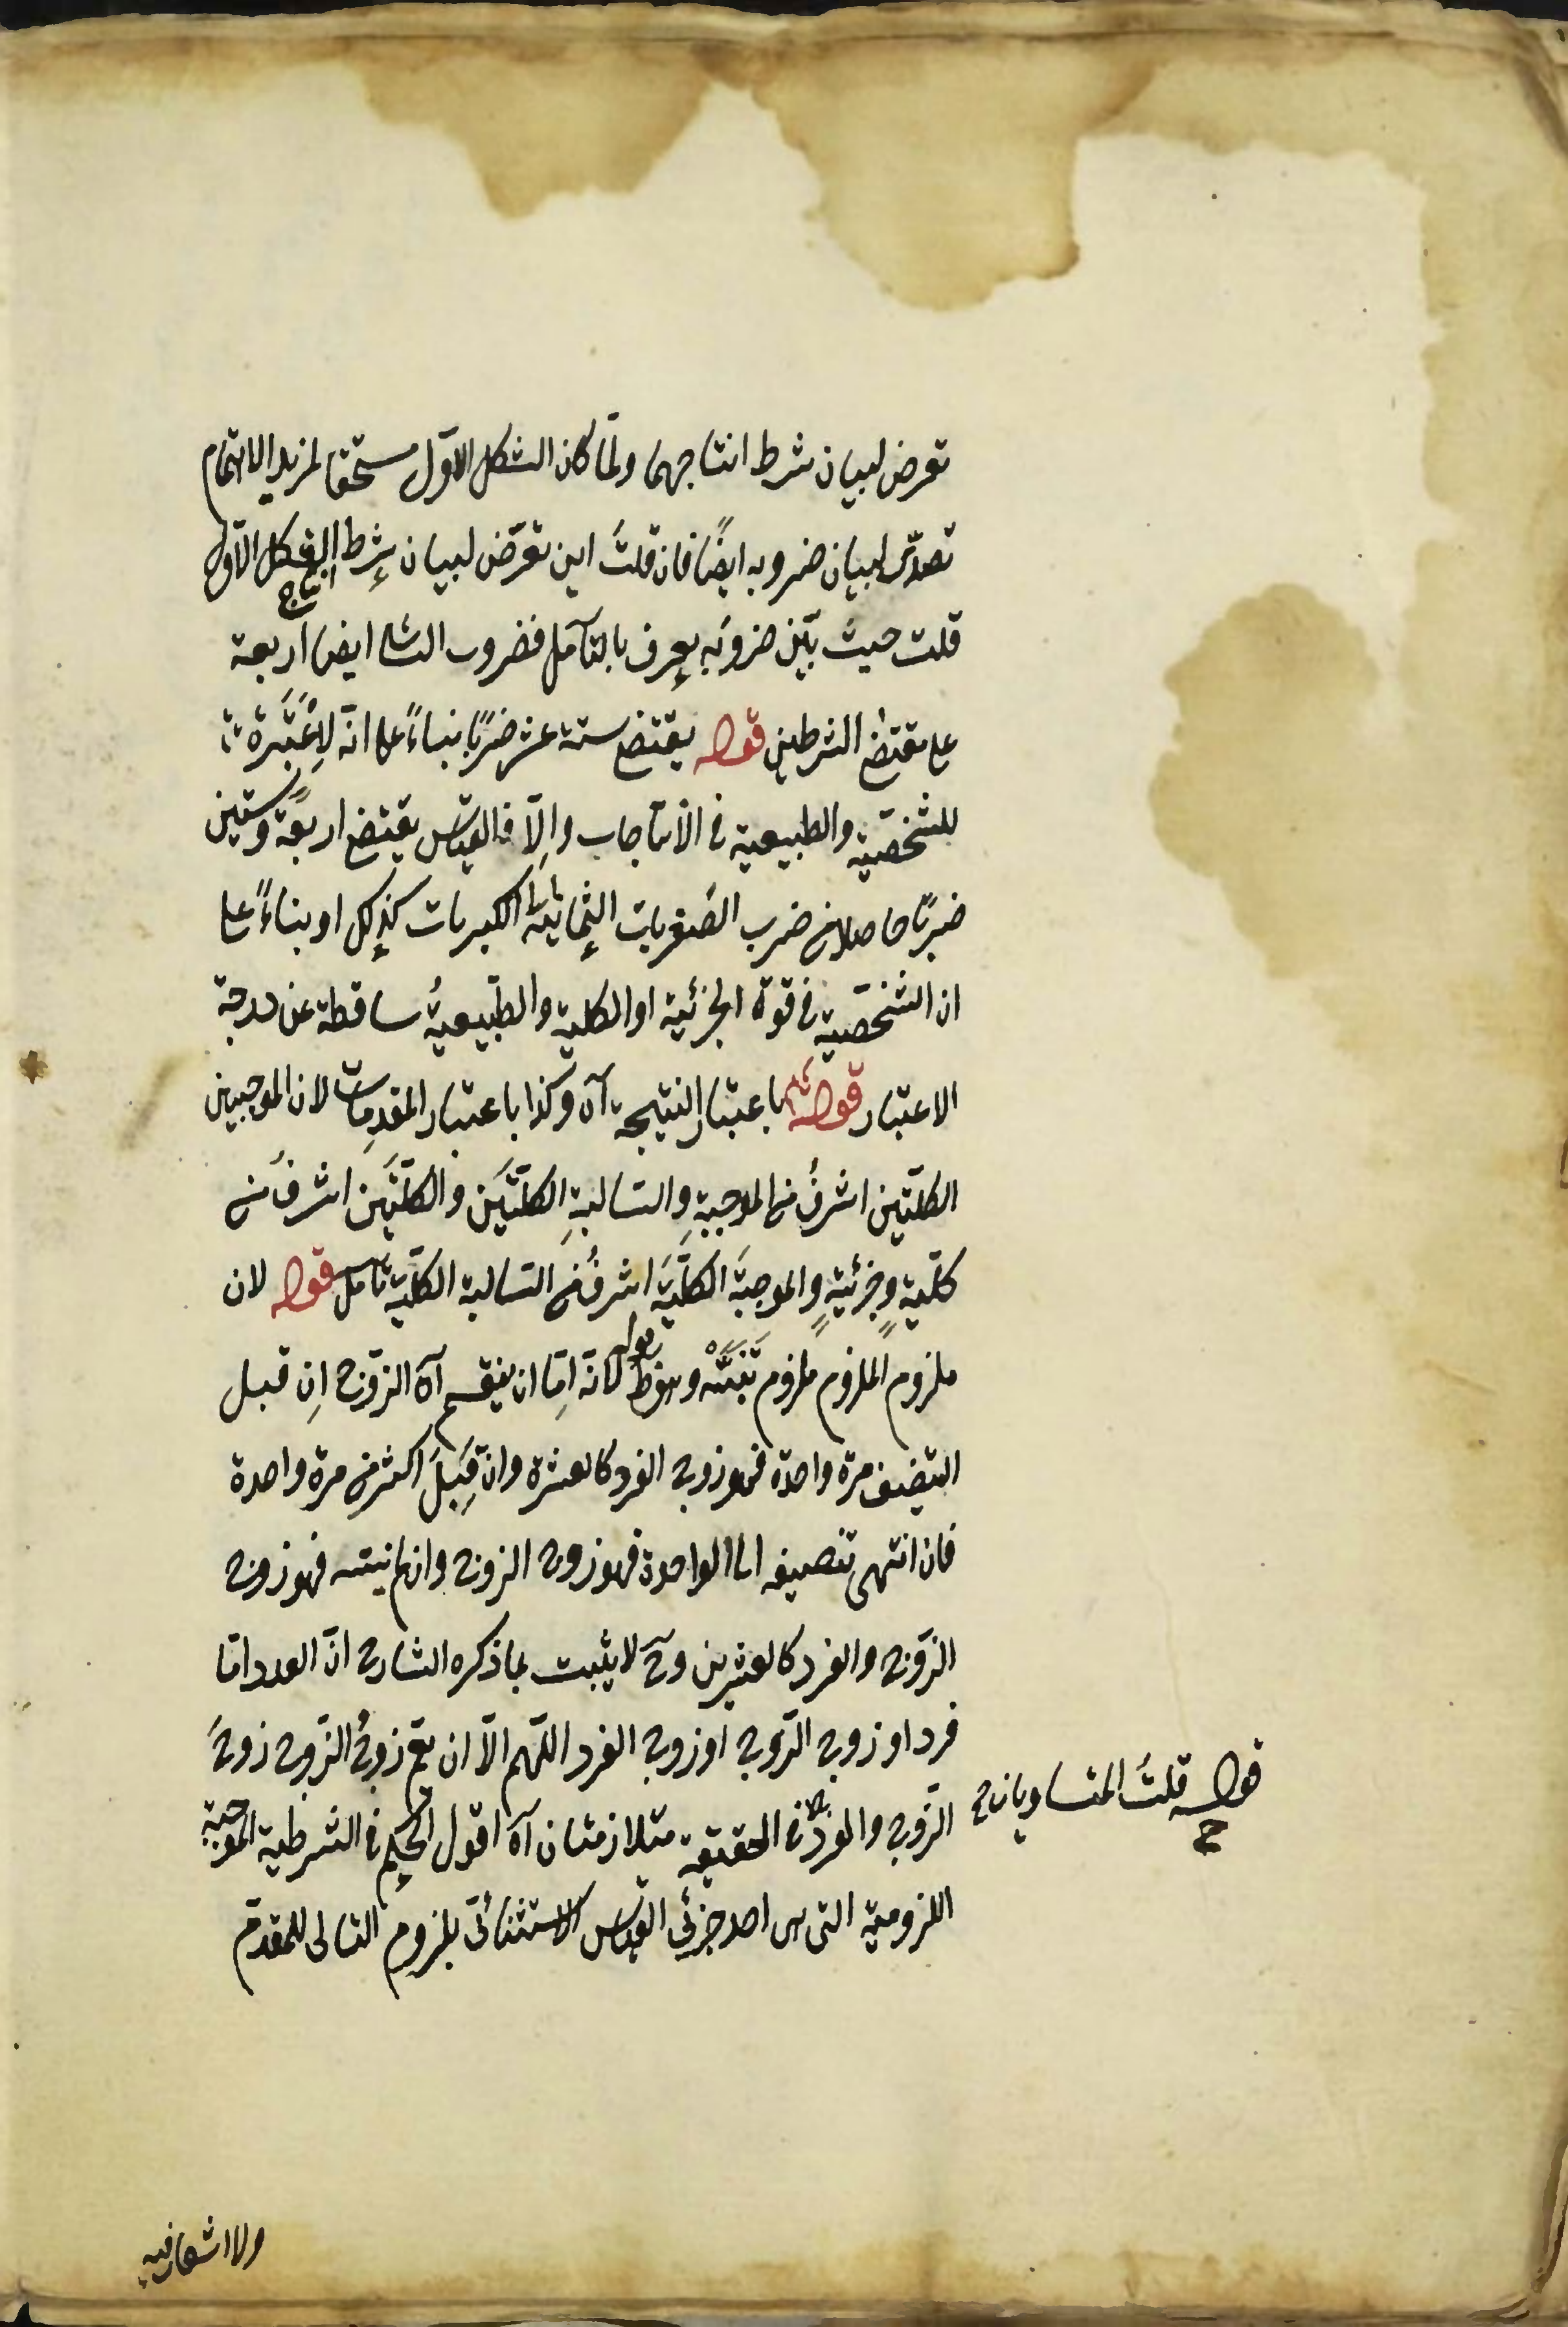 تعرض لبيان شرط انتاجهما ولمّا كان الشكل الاوّل مستحقا لمزيد الاهتمام
تصدّى لبيان ضروبه ايضًا فان قلتَ اين تعرّض لبيان شرط انتاج الشكل الاوّل
قلت حيث بيّن ضروبَه يعرف بالتأمل فضروب الثانى ايضا اربعة
على مقتضى الشرطين قوله يقتضى ستة عشر ضربًا بناءً على انّه لا عِبْرَة
للشخصيّة والطبيعية فى الانتاجات واِلّا فالقياس يقتضى اربعةً وستين
ضربًا حاصلا من ضرب الصّغريات الثمانية فى الكبريات كذلك او بناءً على
ان الشخصيّة فى قوة الجزئية او الكلية والطّبيعيةُ ساقطة عن درجة
الاعتبار قوله باعتبار النتيجة آه وكذا باعتبار المقدمات لان الموجبتين
الكلّيتين اشرفُ من الموجبةِ والسالبةِ الكلّيَتَين والكلّيَتَين اشرفُ من
كلّيةٍ وجزئيةٍ والموجبَةَ الكلّيَةَ اشرفُ من السالبة الكلّية تأمل قوله لان
ملزوم الملزوم ملزوم وهو ط قوله لانّه اِمّا ان ينقسم آه الزّوج اِن قبل
التنصيف مرة واحدة فهو زوج الفرد كالعشرة وان قَبِلَ اكثر من مرة واحدة
فان انتهى تنصيفه الى الواحدة فهو زوج الزوج وان لم ينته فهو زوج
الزّوج والفرد كالعشرين وح لا يثبت بما ذكره الشارح انّ العدد امّا
فرد او زوج الزّوج او زوج الفرد اللّهم الّا ان يعم زوجُ الزّوج زوجَ
الزّوج والفرد فى الحقيقة متلازمتان آه اقول الحكم فى الشرطية الموجبة
قوله قلتَ المتساويان ح
اللزوميّة التى هى احد جزئى القياس الاستثنائىّ بلزوم التالى للمقدّم
ولا اشعار فيه